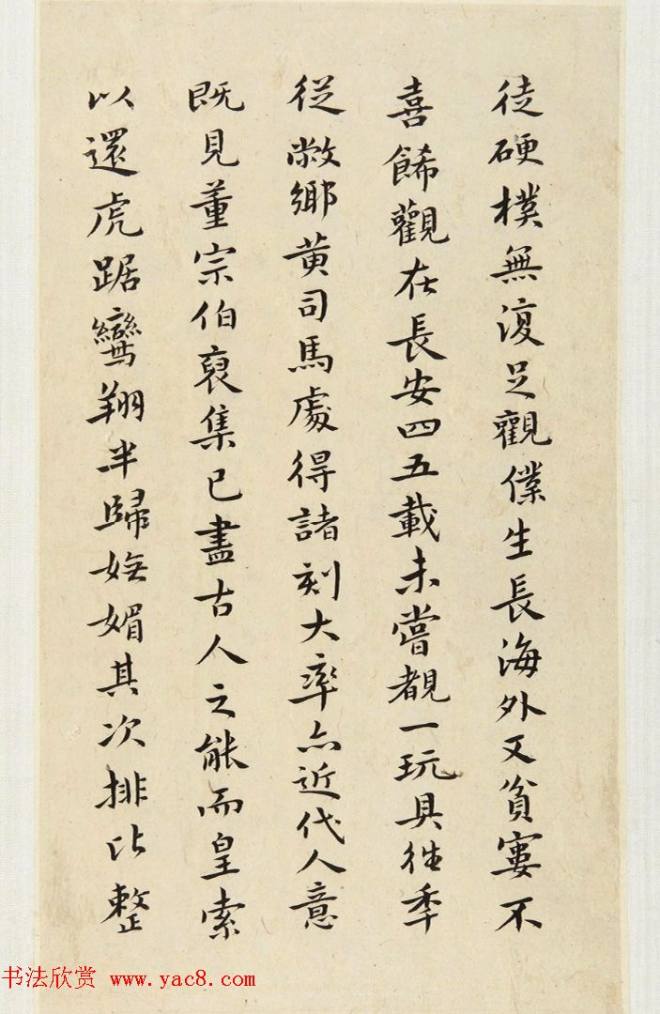 徒硬樸無復足觀僕生長海外又貧窶不
喜餙觀在長安四五載未嘗覩一玩具往季
從敝鄉黄司馬處得諸刻大率亦近代人意
既見董宗伯裒集已盡古人之能而皇索
以還虎踞鸞翔半歸娬媚其次排比整
书法欣赏 www.yac8.com